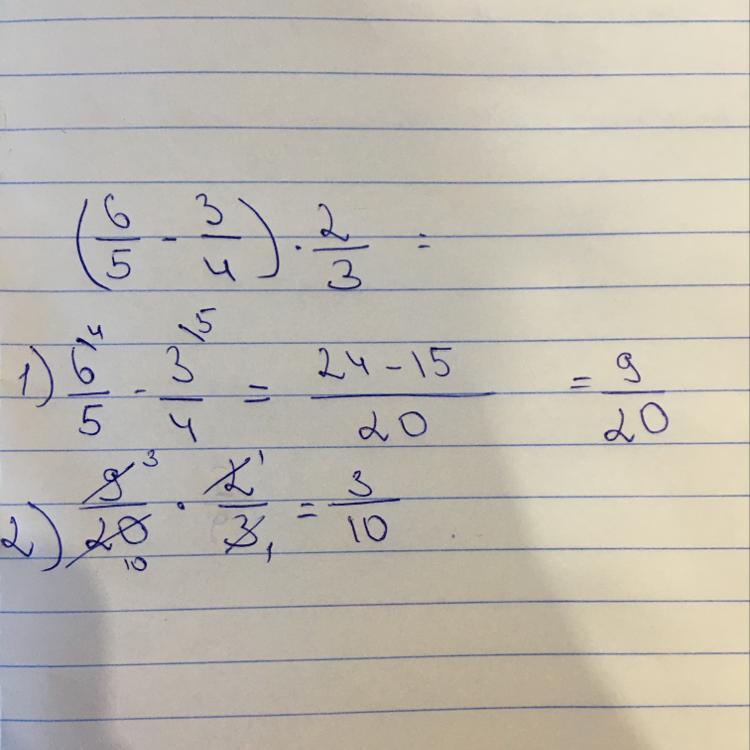 (6/5 - 3/4) · 2/3 =
1) 6\4/5 - 3\5/4 = 24-15/20 = 9/20
2) 9 3/20 10 · 2 1/3 1 = 3/10